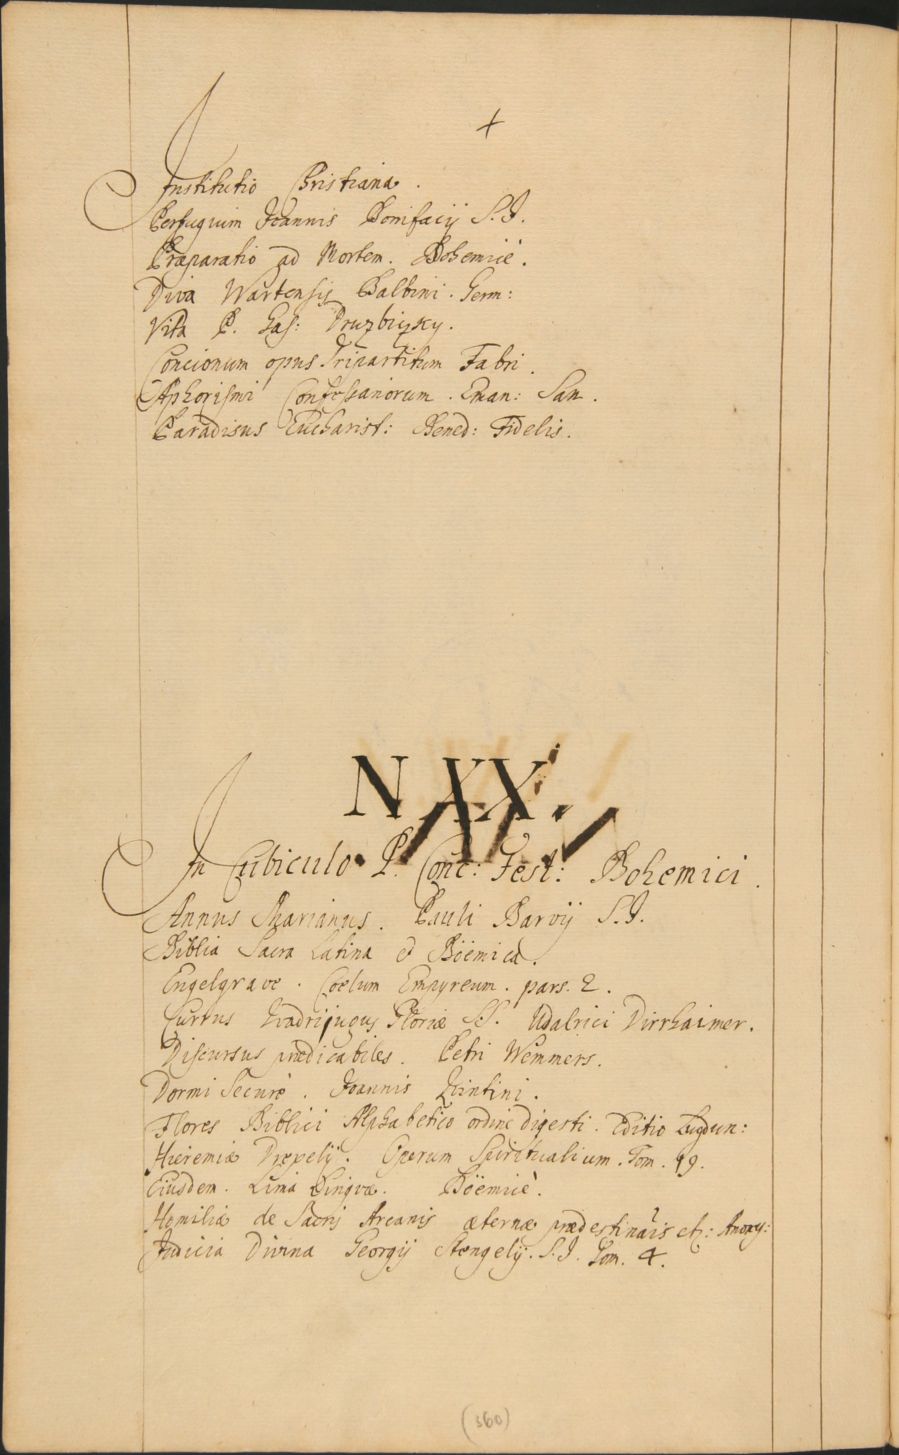 +
Institutio Christiana.
Perfugium Joannis Bonifacij S.J.
Præparatio ad Mortem. Bohemicè.
Diva Wartensis Balbini. Germ:
Vita P. Gas: Druzbizky.
Concionum opus Tripartitum Fabri.
Aphorismi Confessariorum. Eman: Saa.
Paradisus Eucharist: Bened: Fidelis.
N XX.
In Cubiculo P. Conc: Fest: Bohemici.
Annus Marianus. Pauli Barvij S.J.
Biblia Sacra Latina et Böemica.
Engelgrave. Coelum Empyreum. pars. 2.
Currus Quadrijugus Gloriæ Udalrici Dirrhaimer.
Discursus prædicabiles. Petri Wemmers.
Dormi Securè. Joannis Quintini.
Flores Biblici Alphabetico ordine digesti. Editio Lugdun:
Hieremiæ Drexelij. Operum Spiritualium. Tom. 19.
Eiusdem. Lima Linguæ. Böemicè.
Homiliæ de Sacris Arcanis æternæ prædestinaõis etc: Anony:
Judicia Divina Georgij Stengelij. S.J. Tom. 4.
(360)